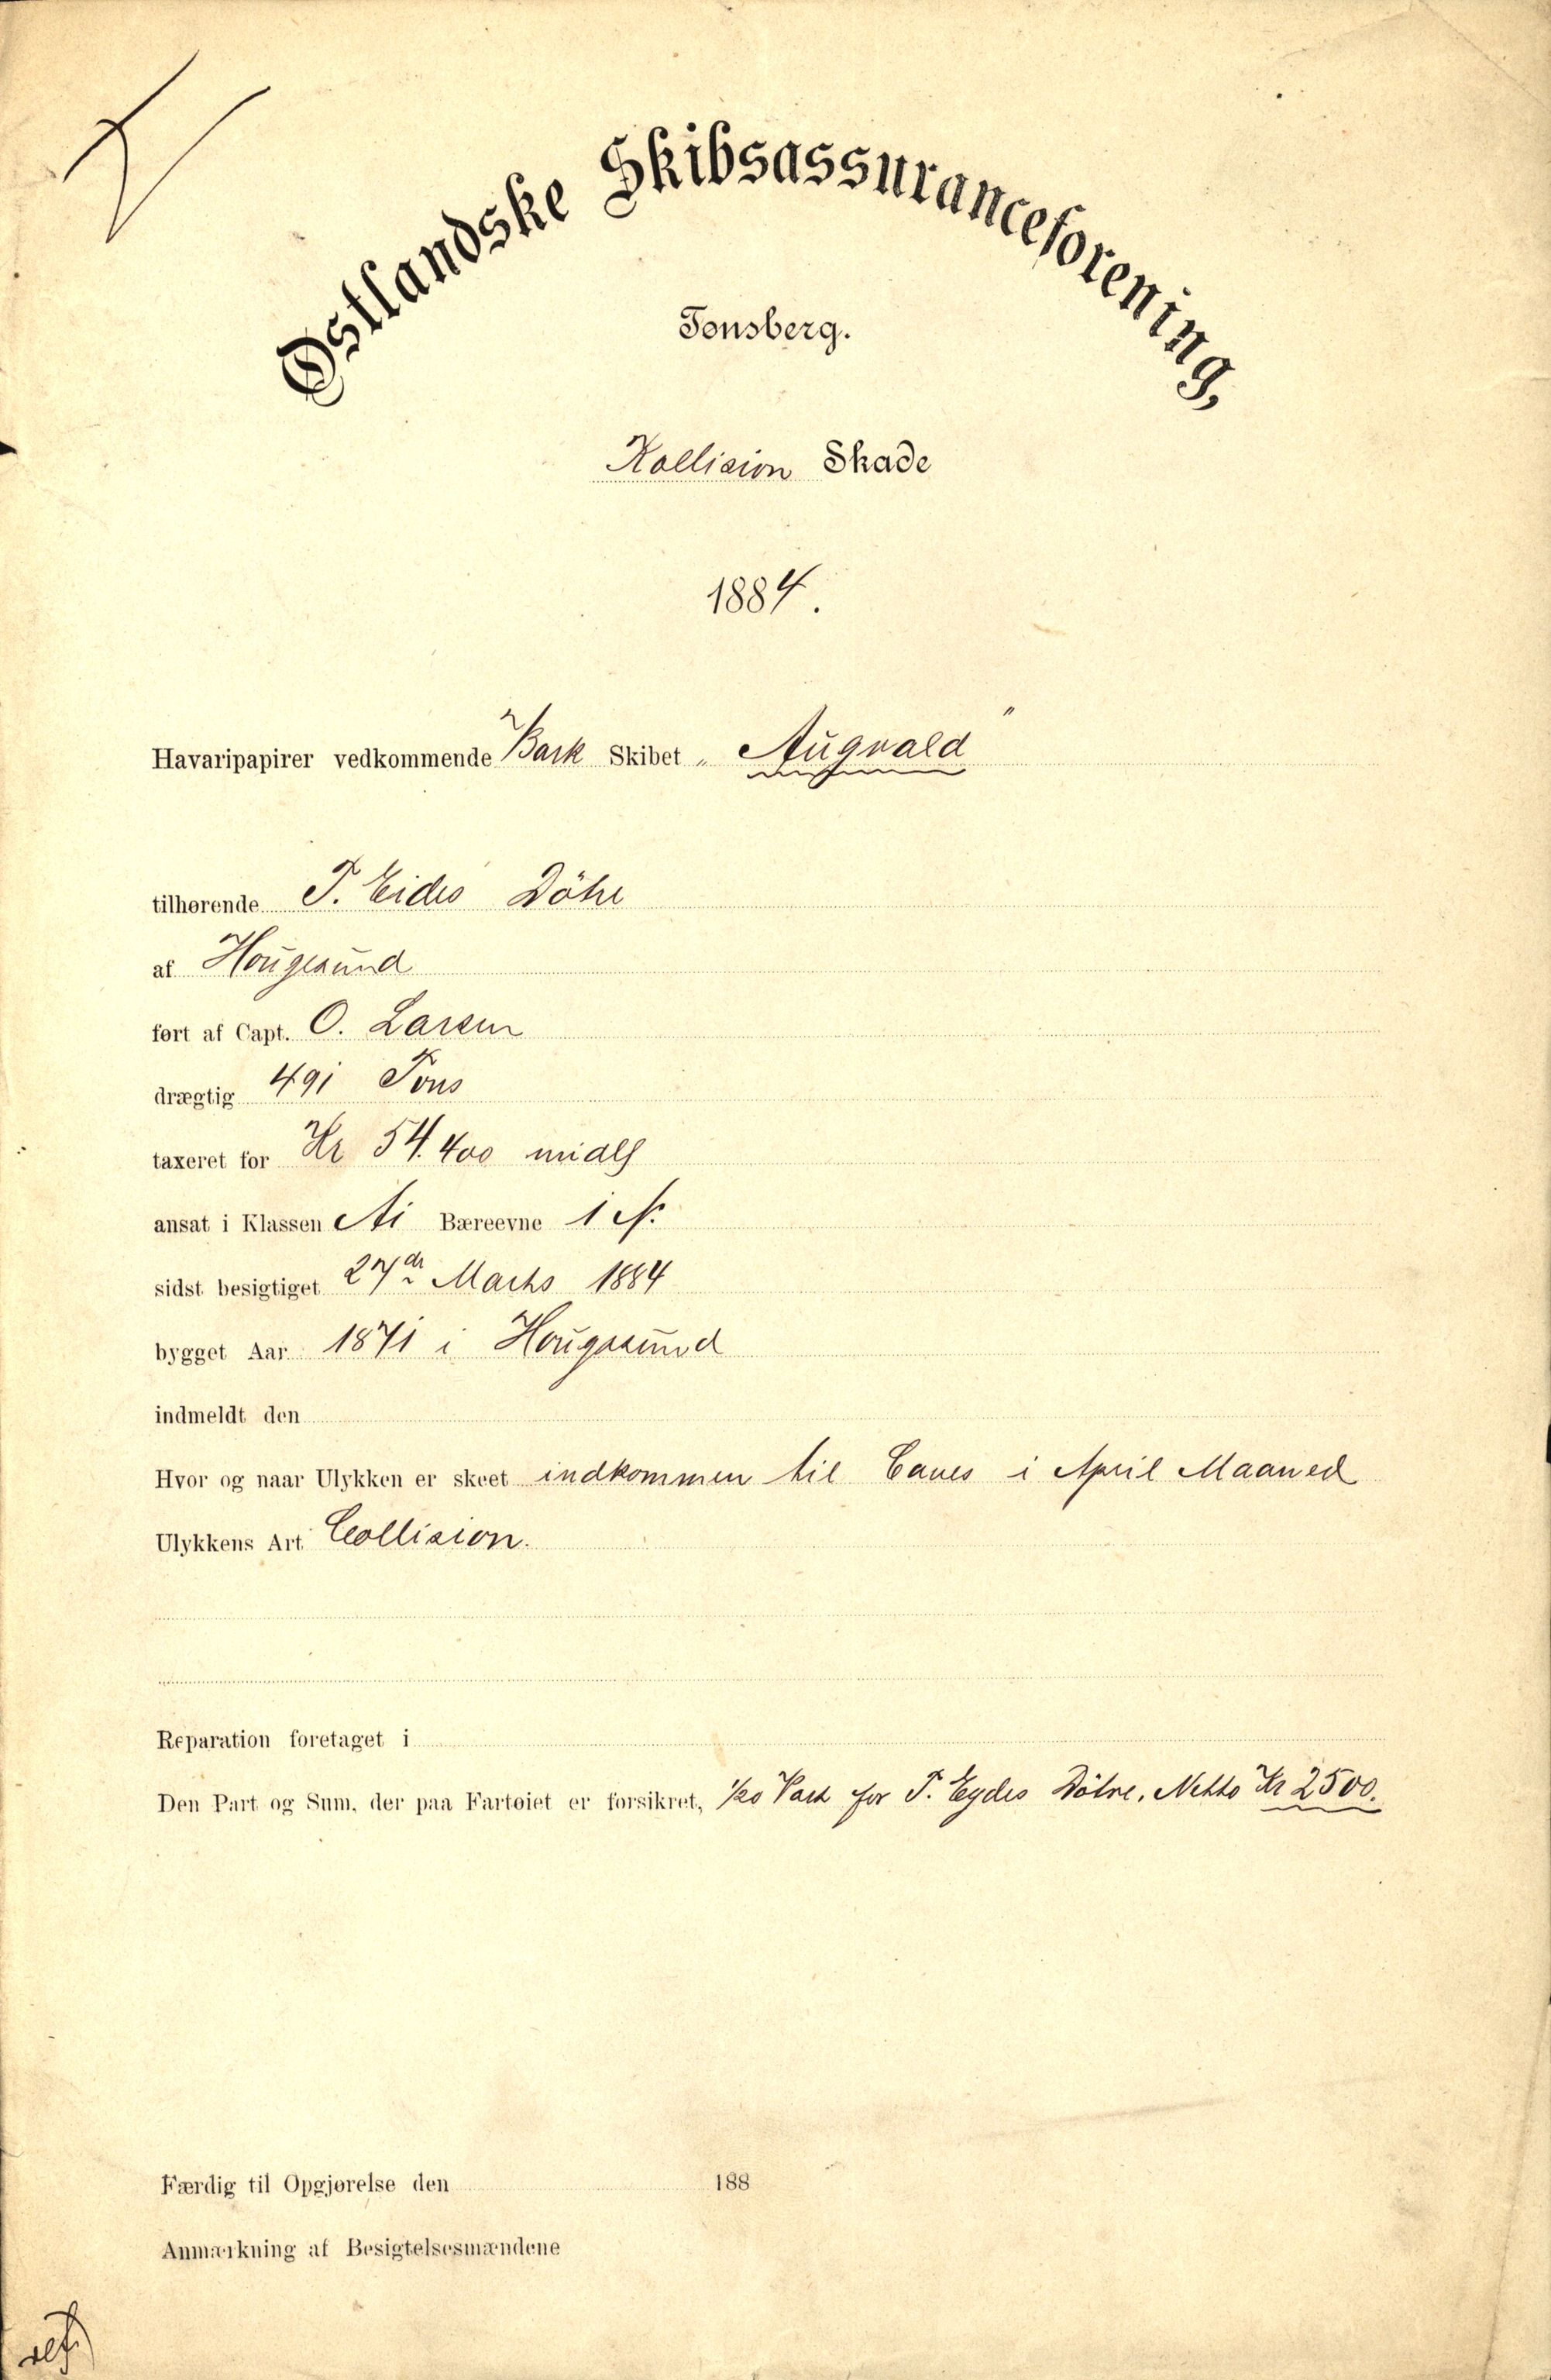 Østlandske Skibsassuranceforening,
Tønsberg.
Kollision Skade
1884.
Havaripapirer vedkommende Bark Skibet „ Augvald "
tilhørende T. Eides Döhr
af Hougesund
ført af Capt. O. Larsen
drægtig 491 Tons
taxeret for Kr 54.400
ansat i Klassen A1 Bæreevne 1
sidst besigtiget 27de Marts 1884
bygget Aar 1871 i Hougesund
indmeldt den
Hvor og naar Ulykken er skeet indkommen til Caves i April Maaned
Ulykkens Art Collision.
Reparation foretaget i
Den Part og Sum, der paa Fartøiet er forsikret, 1/20 Part for T. Eydes Dötre. Netto Kr 2500.
Færdig til Opgjørelse den 188
Anmærkning af Besigtelsesmændene